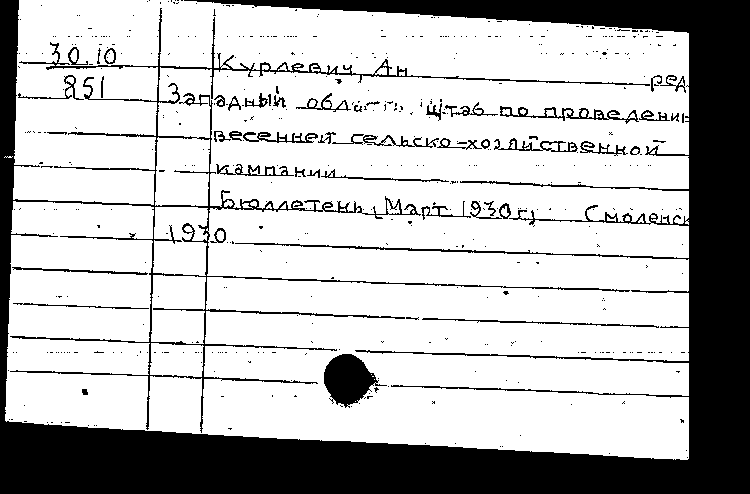 30.10
851
Курлевич, Ан ред
Западный область. Штаб по проведени
весенней сельско-хозяйственной
кампании.
Бюллетень, (Март 1930г.) Смоленск
1930.